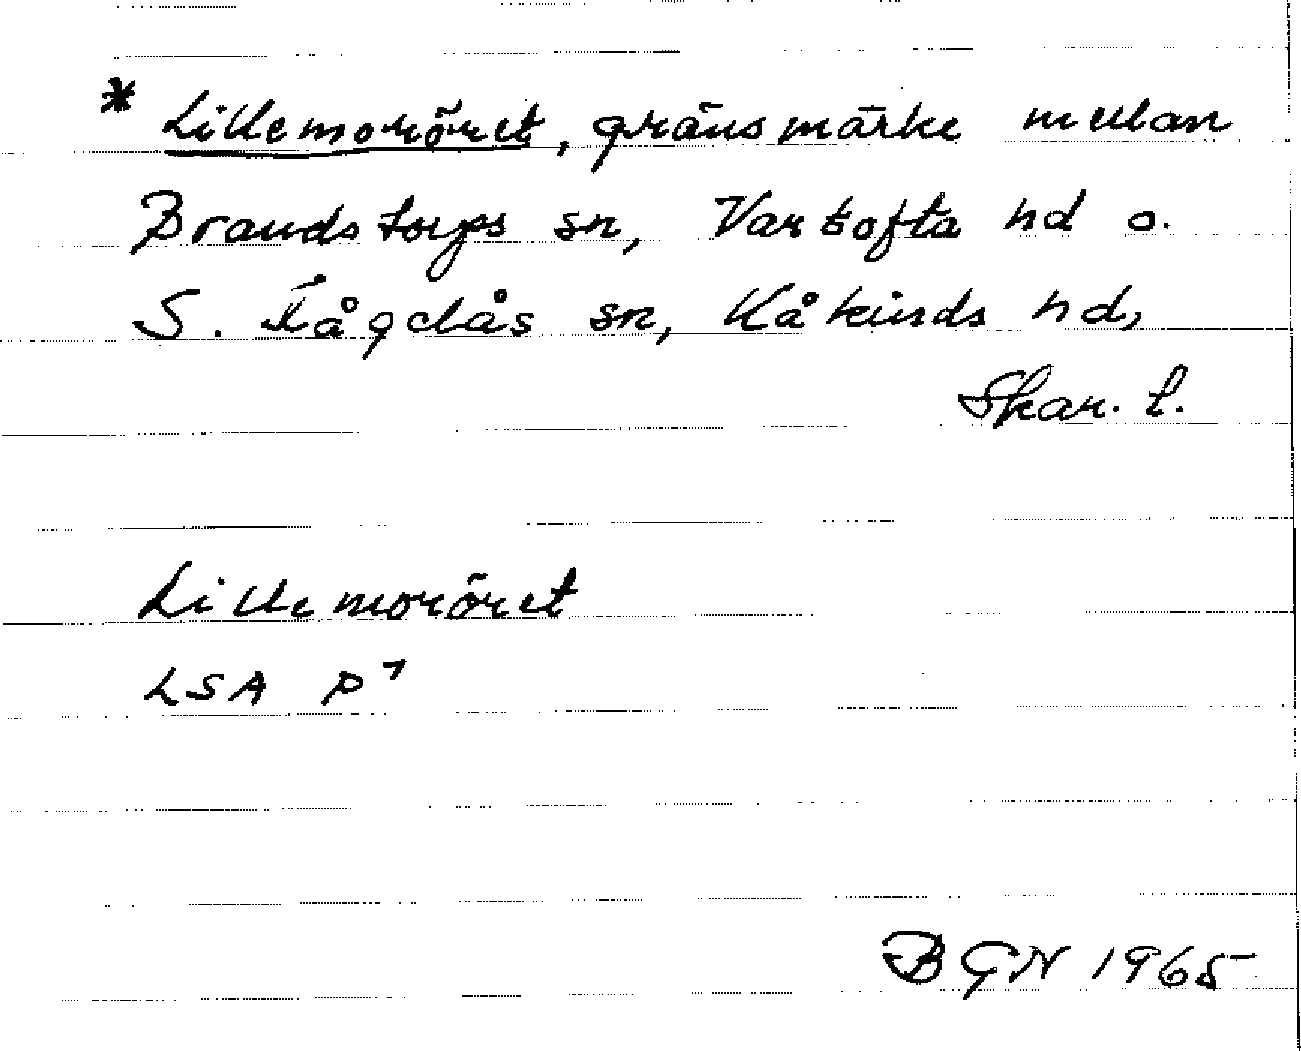 * Lillemoröret, gränsmärke mellan
Brandstorps sn, Vartofta hd o.
S. Fågelås sn, Kåkinds hd,
Skar. l.
Lillemoröret
LSA P7
BGN 1965